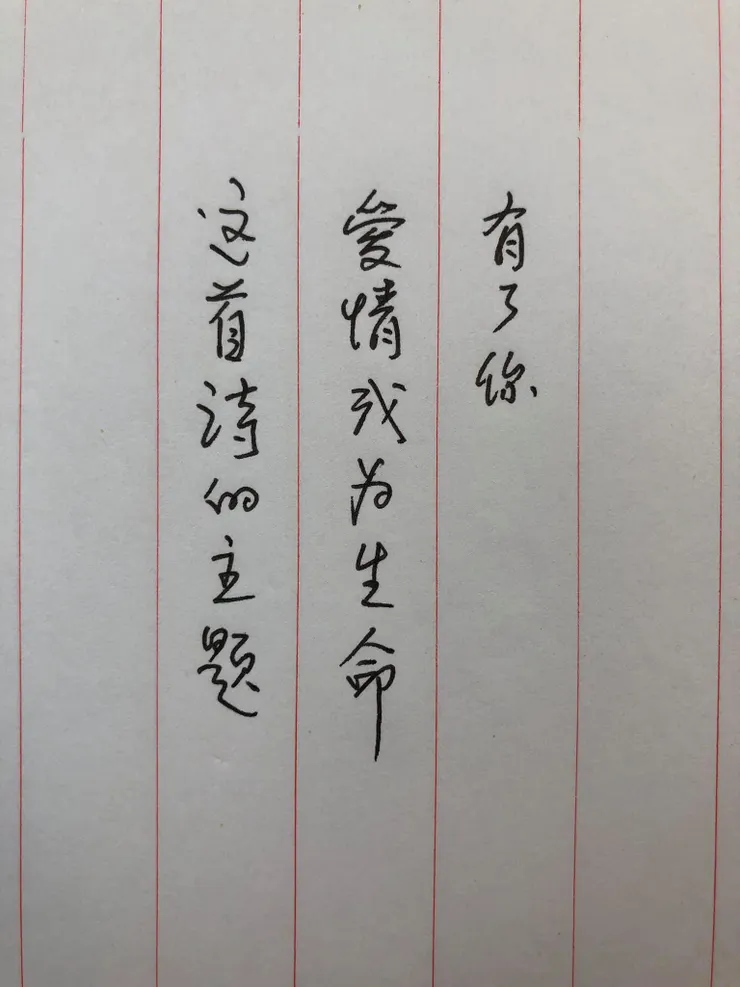 有了你
爱情成为生命
这首诗的主题